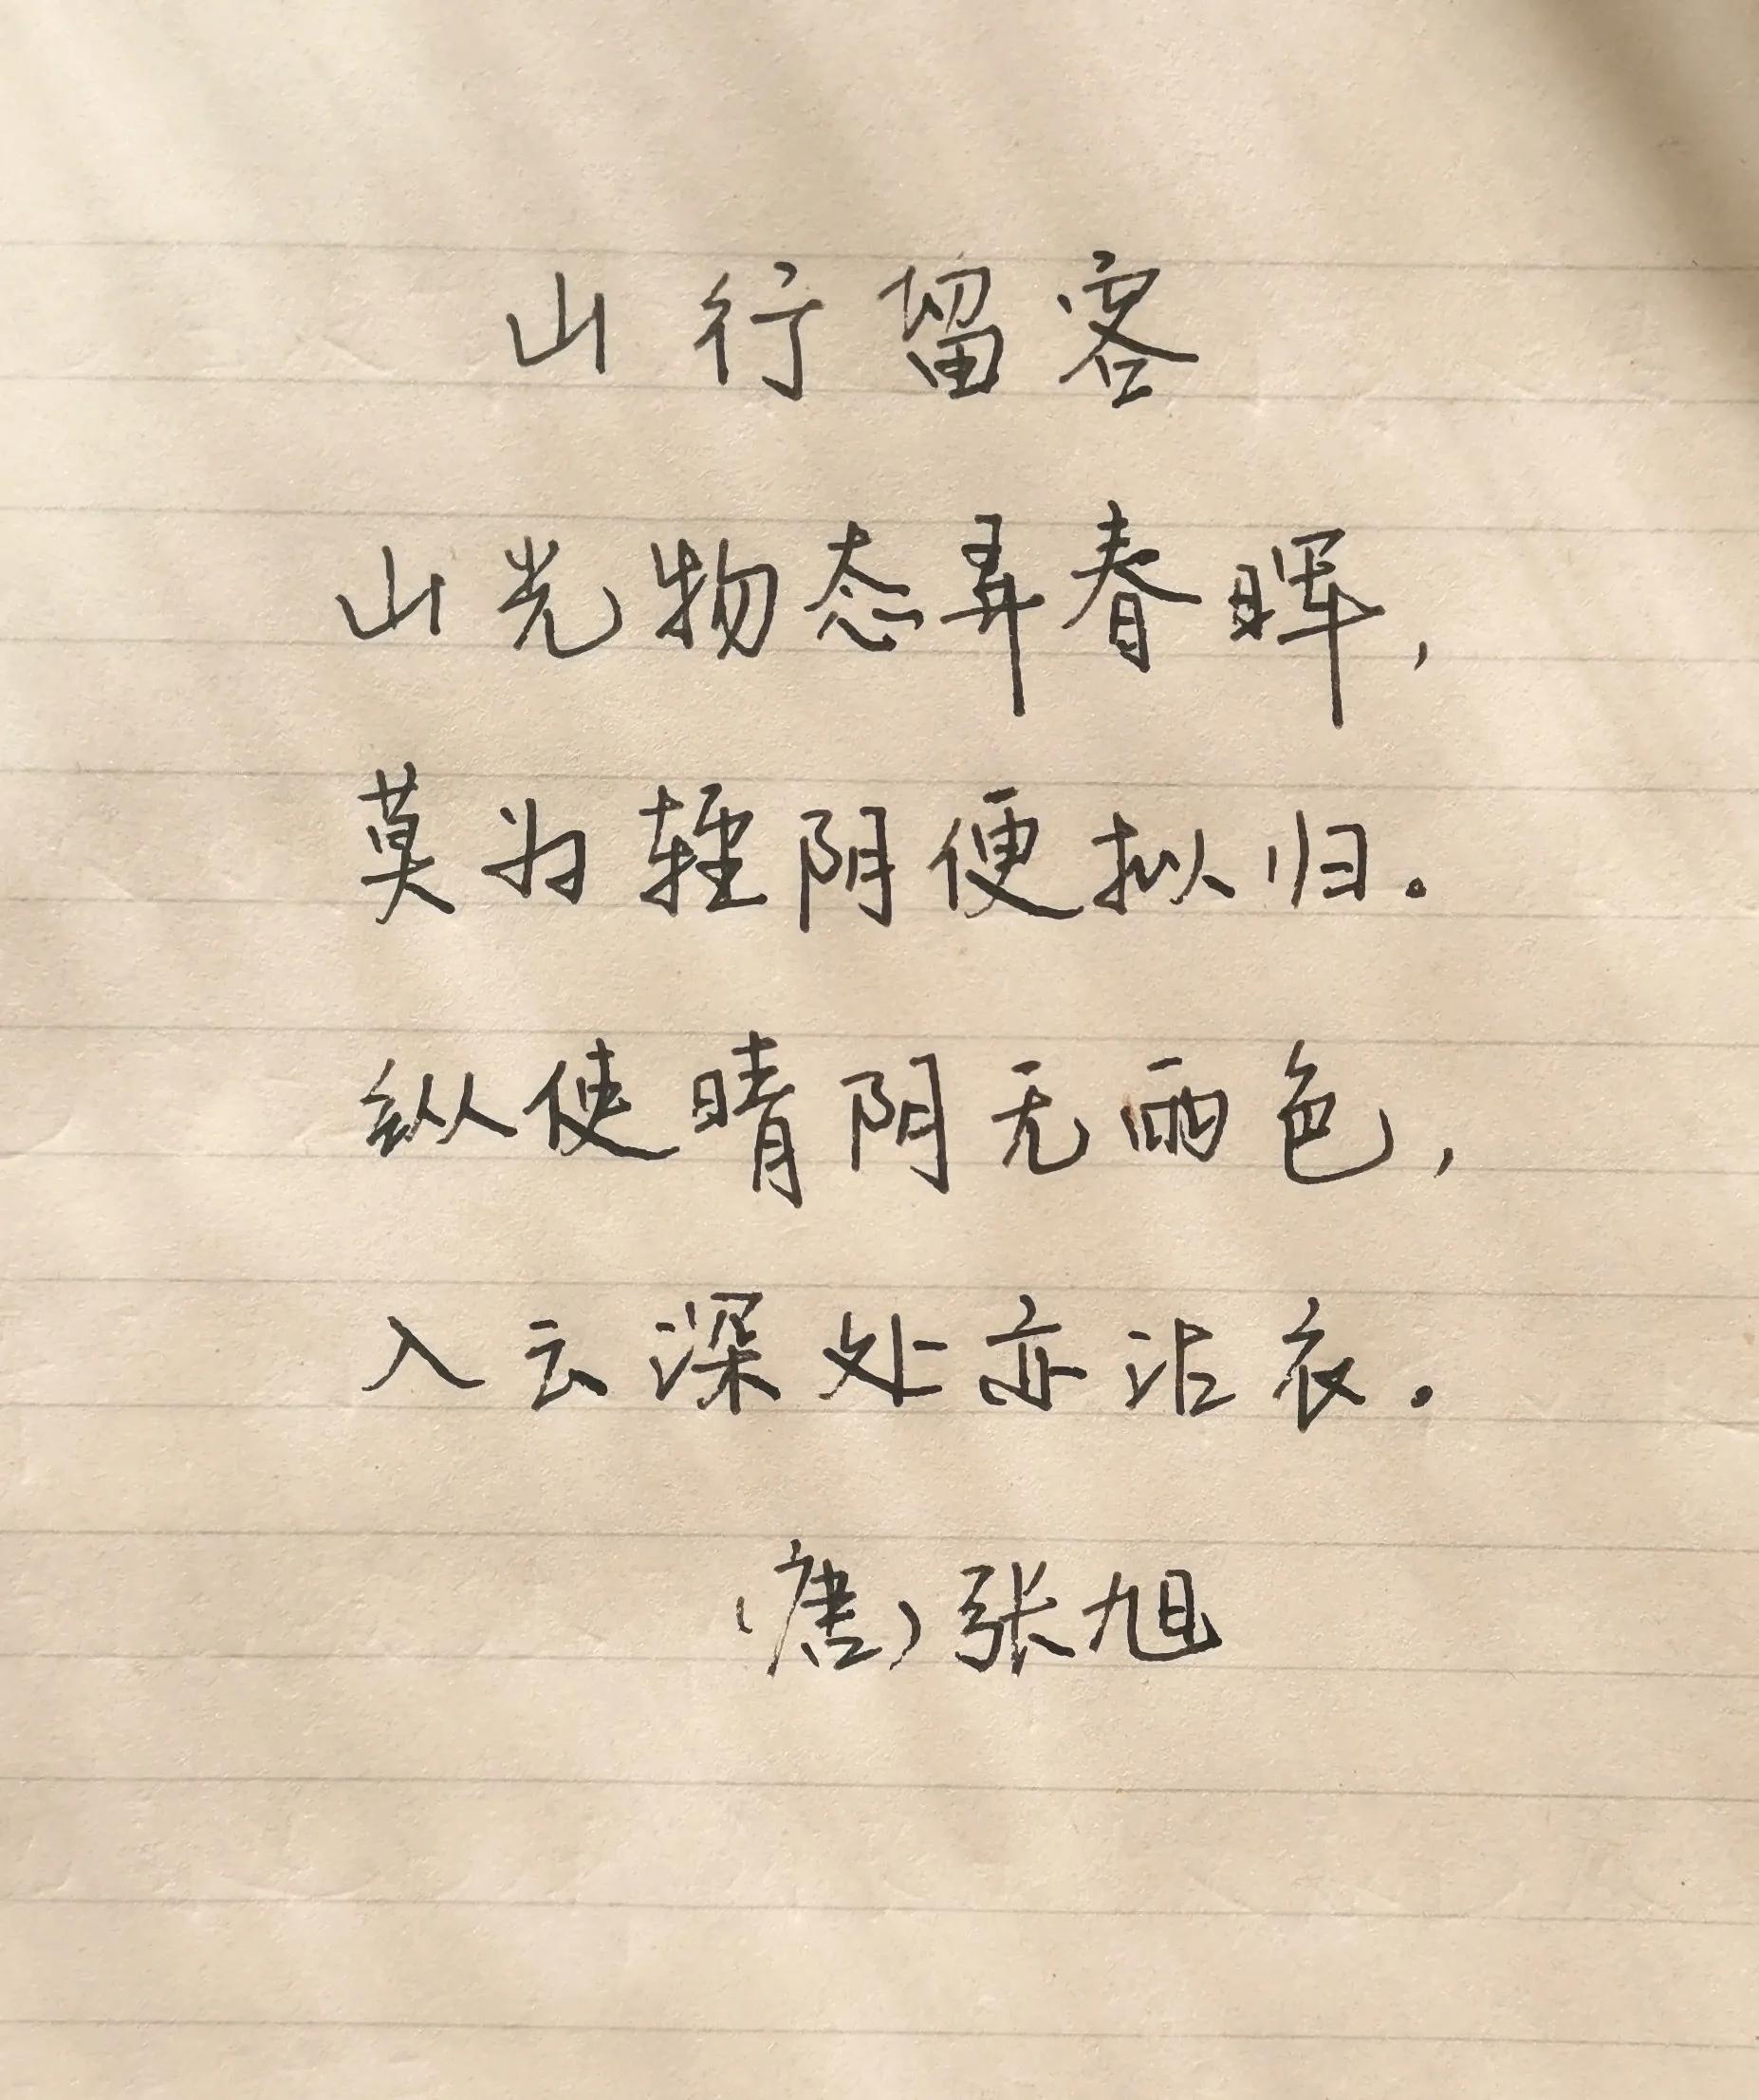 山行留客
山光物态弄春晖，
莫为轻阴便拟归。
纵使晴阴无雨色，
入云深处亦沾衣。
（唐）张旭